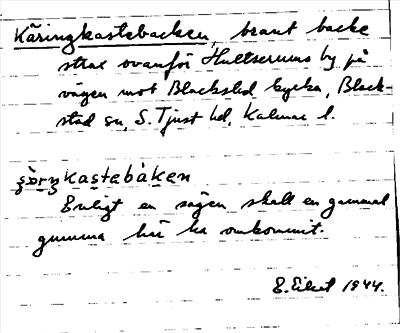 Käringkastebacken, brant backe
strax ovanför Hultserums by på
vägen mot Blackstad kyrka, Black-
stad sn, S. Tjust hd, Kalmar l.
kastebàken
Enligt en sägen skall en gammal
gumma här ha omkommit.
1944.